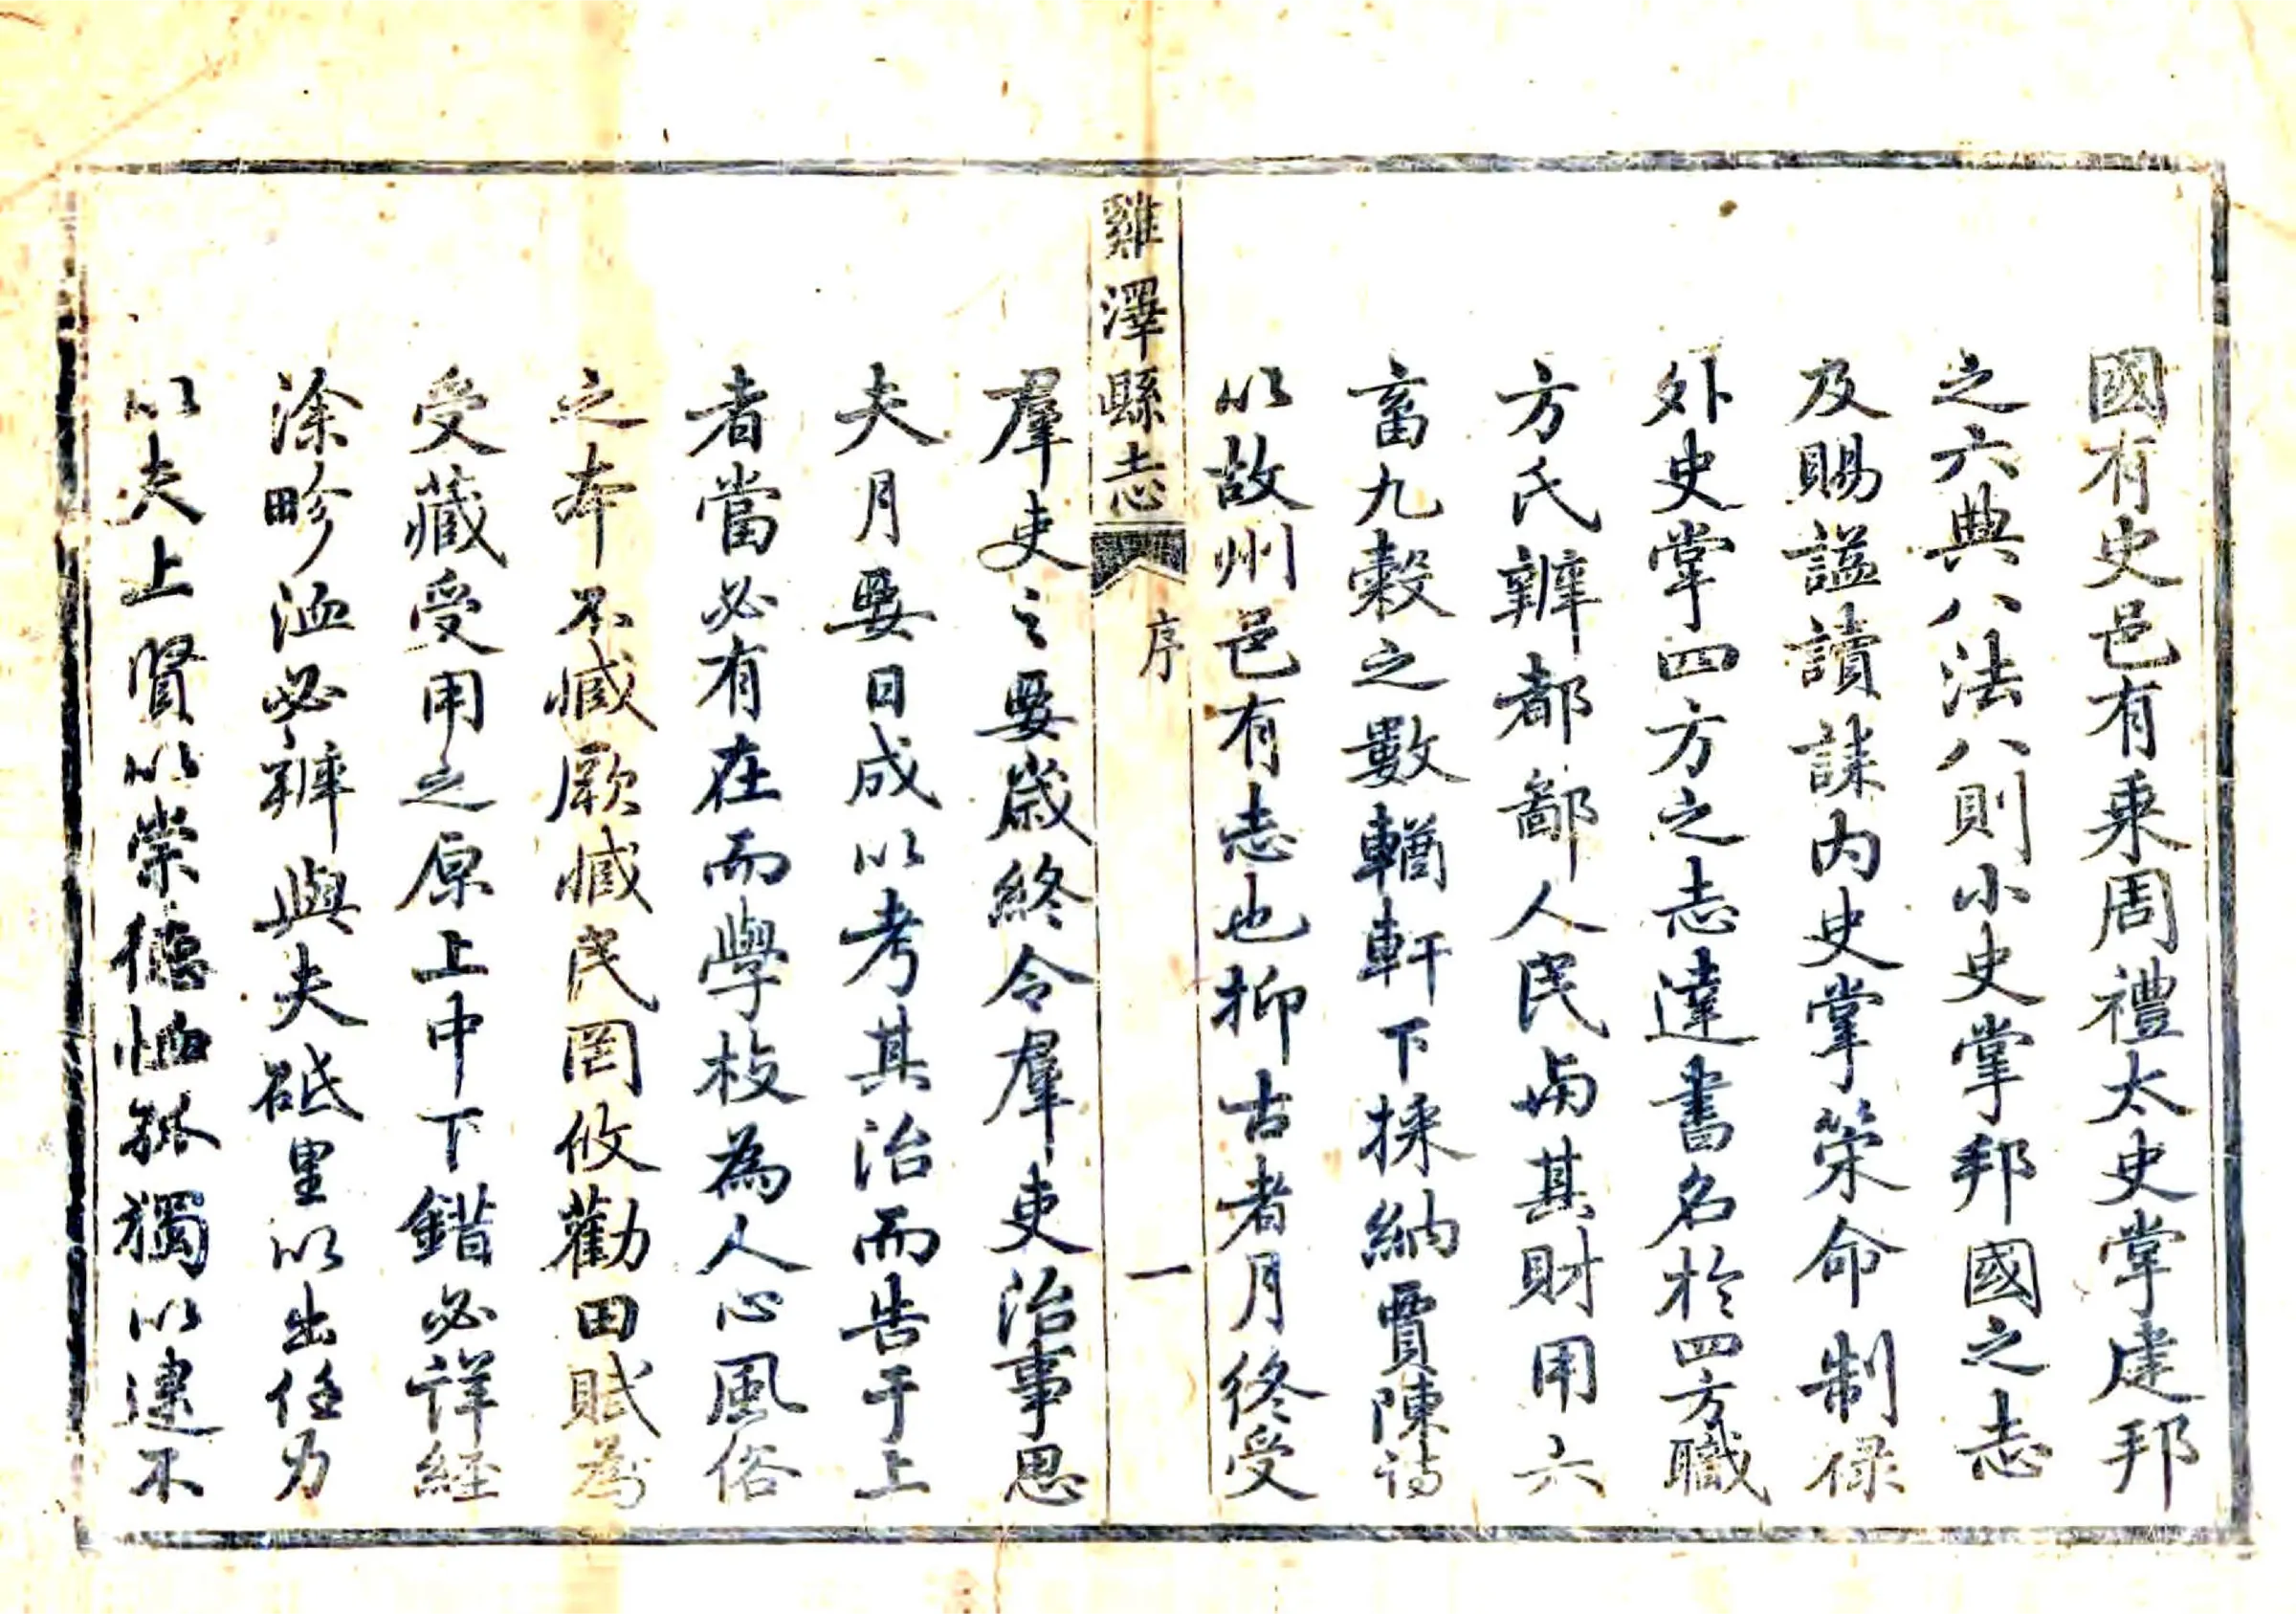 國有史邑有乘周禮太史掌建邦
之六典八法八則小史掌邦國之志
及賜謚讀誄内史掌䇿命制禄
外史掌四方之志達書名於四方職
方氏辨都鄙人民與其財用六
畜九穀之數輶軒下採納賈陳詩
以故州邑有志也抑古者月終受
雞澤縣志
序
一
羣吏之要歲終令羣吏治事思
夫月要日成以考其治而告于上
者當必有在而學校為人心風俗
之本不臧厥臧民罔攸勸田賦為
受藏受用之原上中下錯必詳經
涂畛洫必辨與夫砥里以出任力
以夫上賢以崇德恤孤獨以逮不